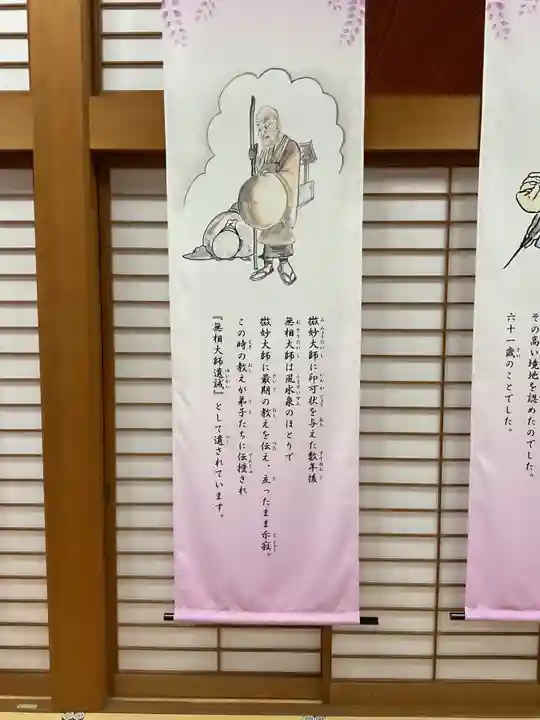 微妙大師に印可状を与えた数年後
無相大師は風水泉のほとりで
微妙大師に最期の教えを伝え、立ったまま示寂。
この時の教えが弟子たちに伝授され
『無相大師遺誡』として遺されています。
その高い境地を認めたのでした。
六十一歳のことでした。